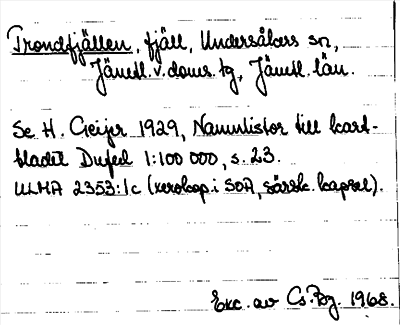 Trondfjällen, fjäll, Undersåkers sn,
Jämtl. v. doms. tg, Jämtl. län.
Se H. Geijer 1929, Namnlistor till kart-
bladet Dufed 1:100 000, s. 23.
ULMA 2353:1c (xerokop. i SOA, särsk. kapsel).
Exc. av Cs. Bg. 1968.